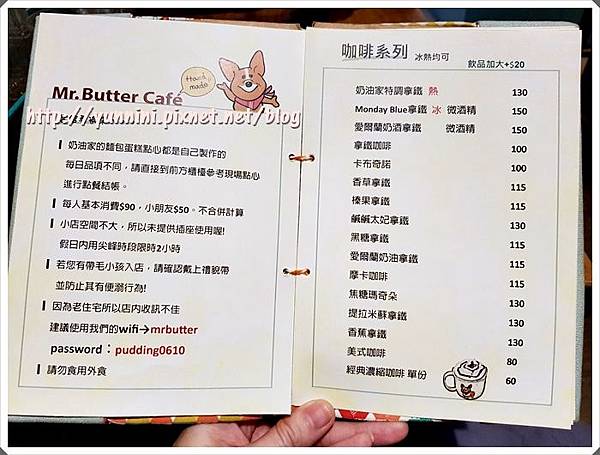 Hand made
Mr.Butter Café
http://nunnini.pixnet.net/blog
奶油家的麵包蛋糕點心都是自己製作的
每日品項不同，請直接到前方櫃檯參考現場點心
進行點餐結帳。
每人基本消費$90，小朋友$50。不合併計算
小店空間不大，所以未提供插座使用喔!
假日內用尖峰時段限時2小時
若您有帶毛小孩入店，請確認戴上禮貌帶
並防止其有便溺行為!
因為老住宅所以店內收訊不佳
建議使用我們的wifi→mrbutter
password：pudding0610
請勿食用外食
咖啡系列 冰熱均可 飲品加大+$20
奶油家特調拿鐵 熱 130
Monday Blue拿鐵 冰 微酒精 150
愛爾蘭奶酒拿鐵 微酒精 150
拿鐵咖啡 100
卡布奇諾 100
香草拿鐵 115
榛果拿鐵 115
鹹鹹太妃拿鐵 130
黑糖拿鐵 115
愛爾蘭奶油拿鐵 115
摩卡咖啡 115
焦糖瑪奇朵 130
提拉米蘇拿鐵 130
香蕉拿鐵 130
美式咖啡 80
經典濃縮咖啡 單份 60